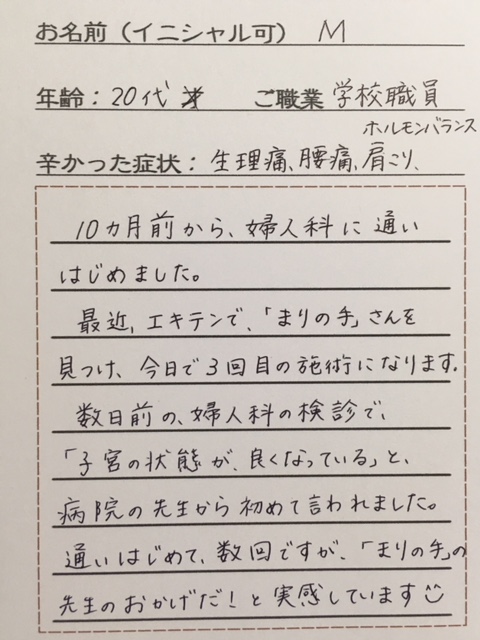 お名前（イニシャル可） M
年齢：20代 ご職業 学校職員
ホルモンバランス
辛かった症状：生理痛、腰痛、肩こり、
10カ月前から、婦人科に通い
はじめました。
最近、エキテンで、「まりの手」さんを
見つけ、今日で3回目の施術になります。
数日前の、婦人科の検診で、
「子宮の状態が、良くなっている」と、
病院の先生から初めて言われました。
通いはじめて、数回ですが、「まりの手」の
先生のおかげだ！と実感しています